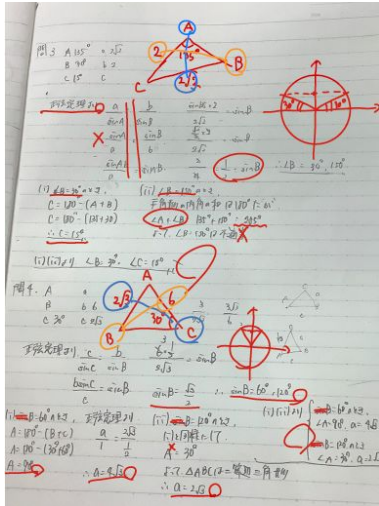 問3 A 135° a 2√2
B 30° b 2
C 15° C
A
2
135°
B
C
2√2
正弦定理より a/sinA b/sinB = sinB
30° 30°
1/2 = sinB ∴∠B = 30°, 150°
(i) ∠B=30°のとき
C = 180°-(A+B)
C = 180°-(135+30)
∴ C = 15°
(ii) ∠B=150°のとき
三角形の内角の和は180°
∠A+∠B 135°+150° = 285°
よって、∠B=150°は不適
(i)(ii)より ∠B=30°, ∠C=15°
問4. A a
B b 6
C 30° c 2√3
A
2√3 6
30°
B C
正弦定理より c/sinC b/sinB = sinB
bsinC/c = sinB sinB = √3/2 ∴ sinB=60°, 120°
(i) B=60°のとき
A=180°-(B+C)
A=180°-(30°+60°)
A=90°
正弦定理より
a/1 = 2√3/(1/2)
∴ a=4√3
(ii) B=120°のとき
(i)と同様にして
A=30°
よって △ABCは二等辺三角形
∴ a=2√3
(i)(ii)より
B=60°のとき
∠A=90°, a=4√3
B=120°のとき
∠A=30°, a=2√3